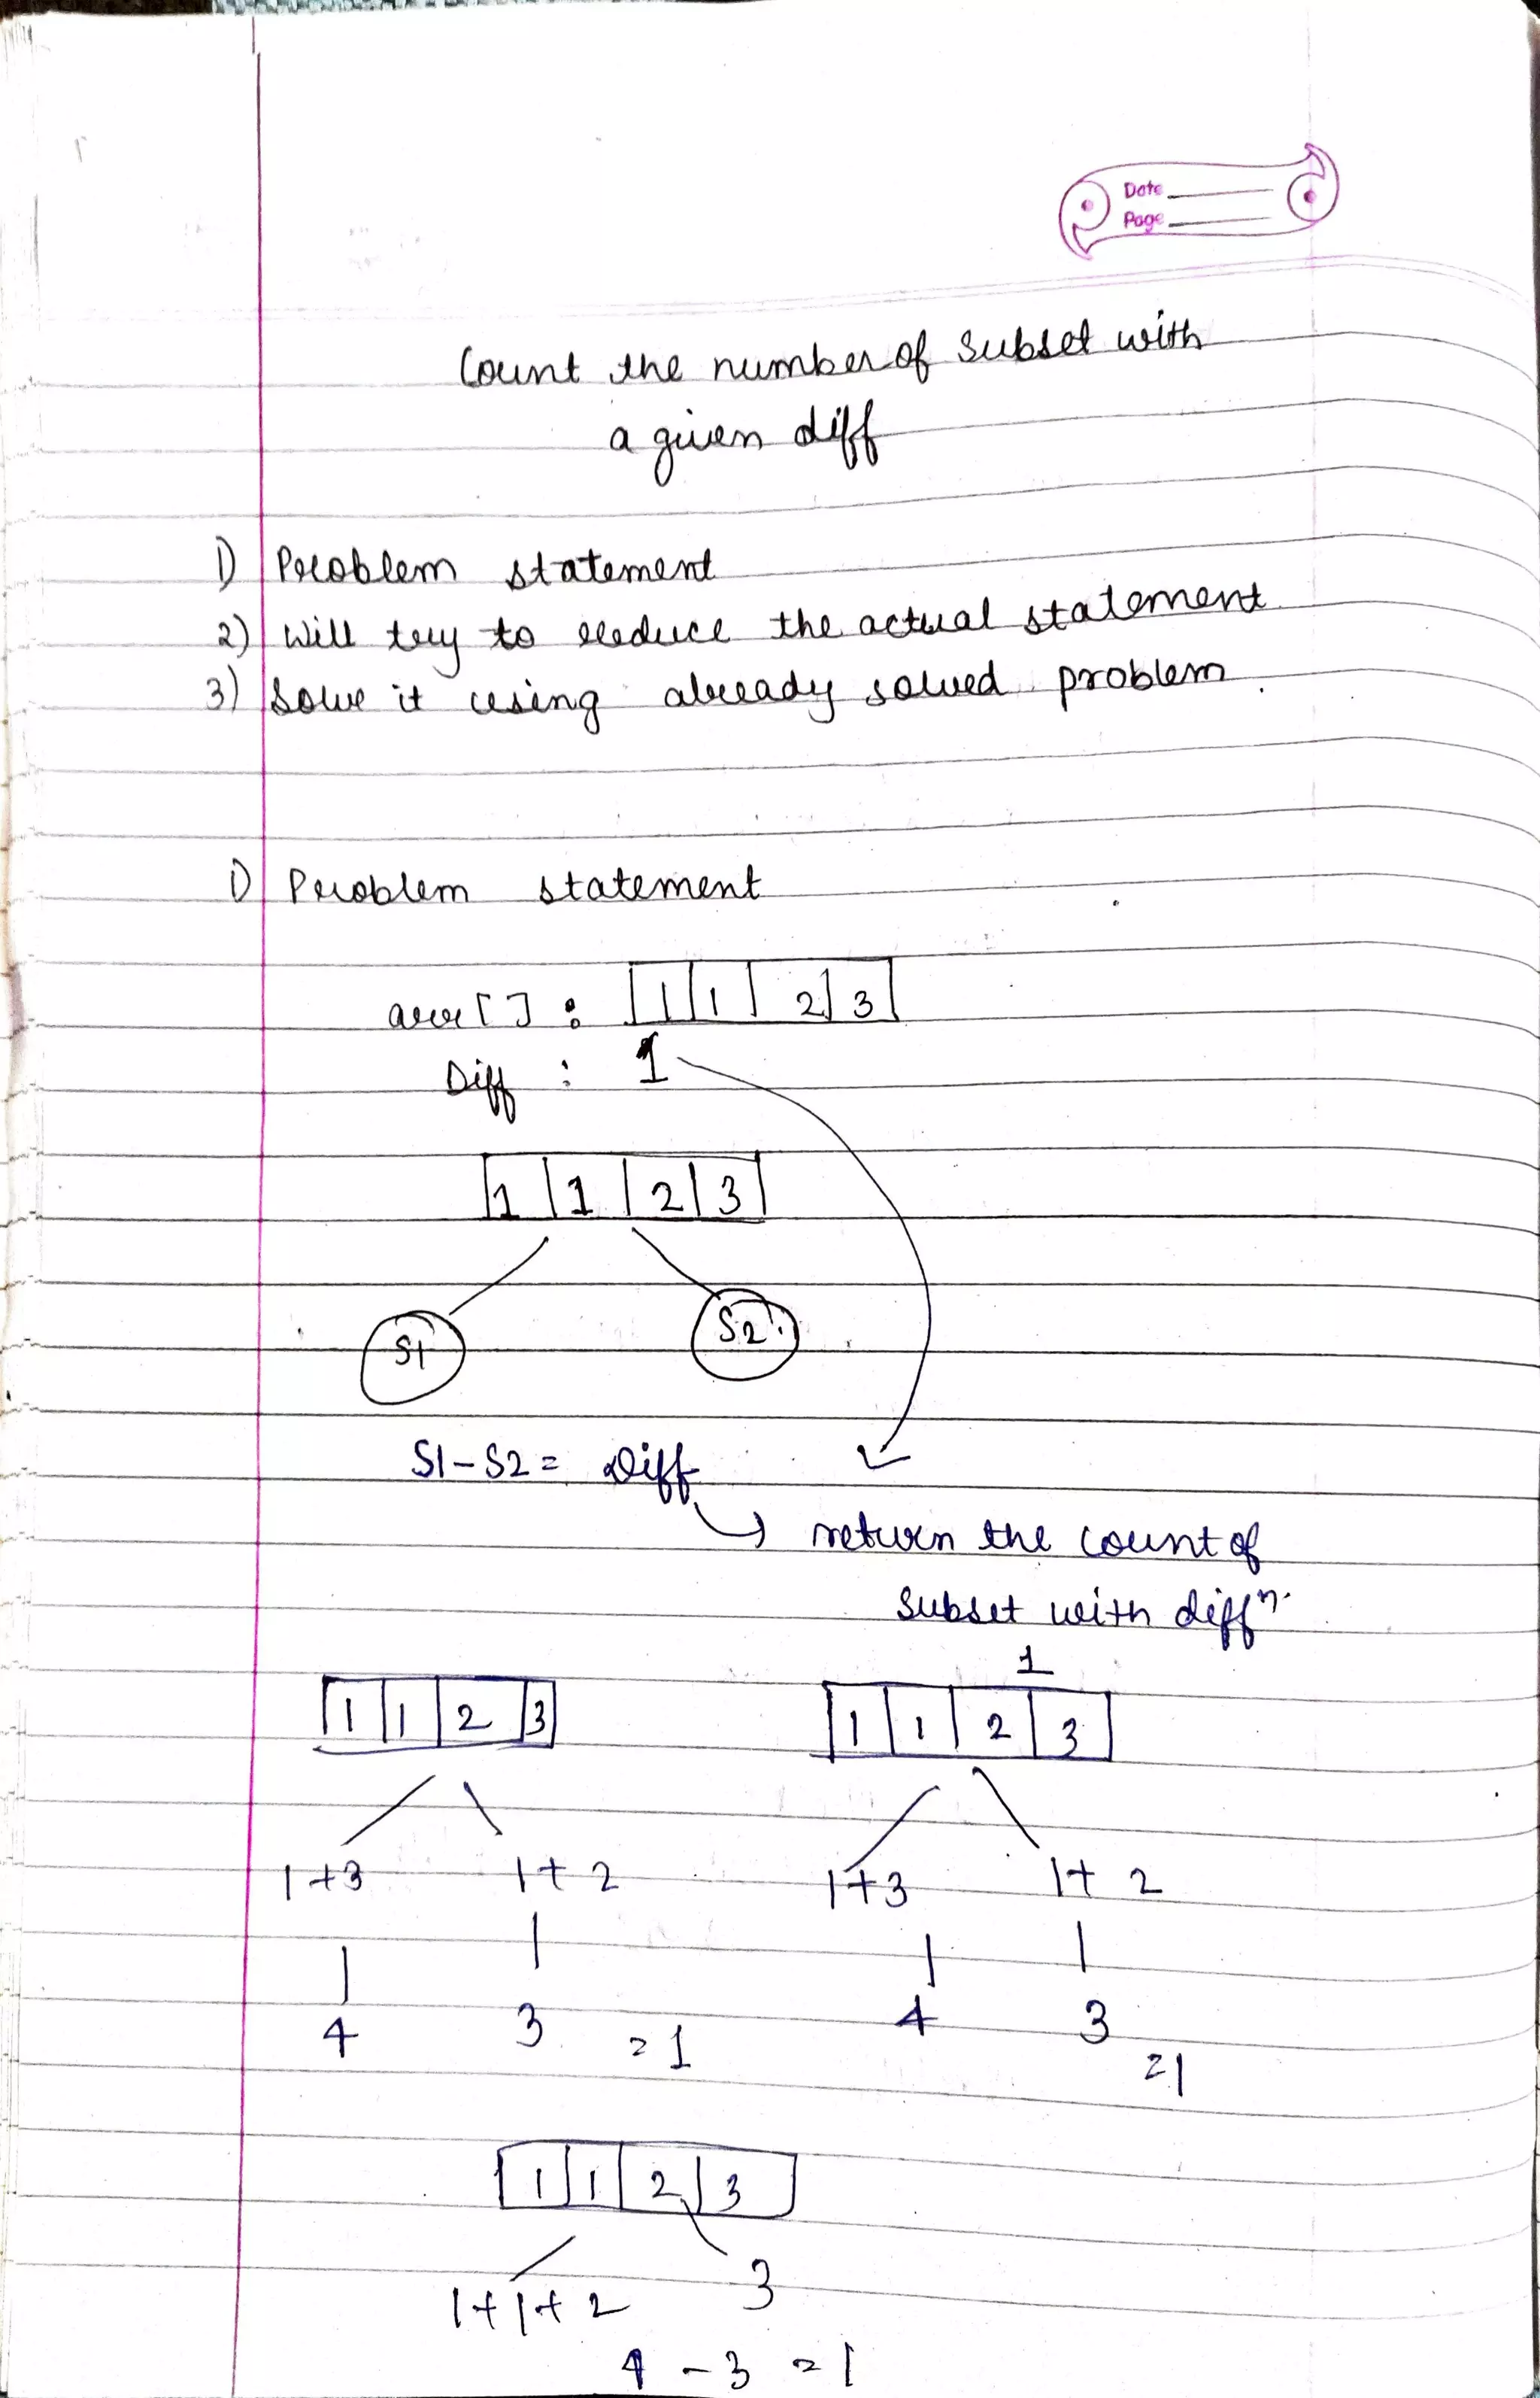 Date
Page
Count the number of subset with
a given diff
1) Problem statement
2) Will try to reduce the actual statement
3) Solve it using already solved problem.
1) Problem statement
arr[] : 1 1 2 3
Diff : 1
1 1 2 3
S1 S2
S1-S2 = Diff
return the count of
subset with diffn.
1
1 1 2 3 1 1 2 3
1+3 1+2 1+3 1+2
4 3 =1 4 3 =1
1 1 2 3
1+1+2 3
4 - 3 = 1